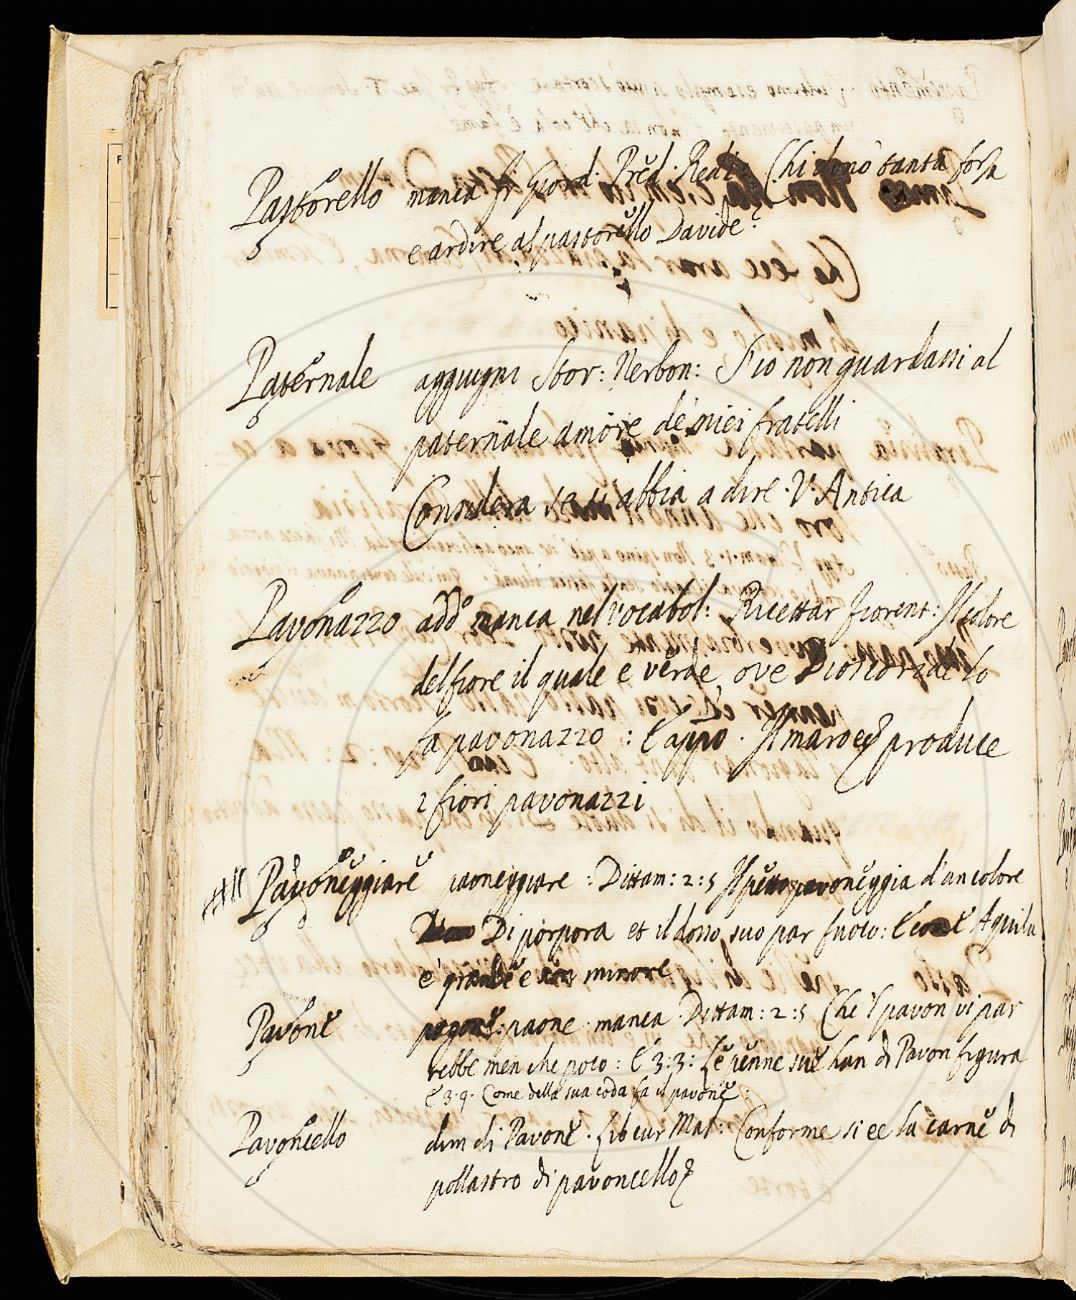 Pastorello manca fr. Giord. Pred. Red. Chi donò tanta forza
e ardire al pastorello Davide?
Paternale aggiugni Stor: Nerbon: S'io non guardassi al
paternale amore de' miei fratelli
Considera se ti abbia a dire. V. Antica
Pavonazzo add.º manca nel vocabol: Ricettar fiorent: Il colore
del fiore il quale è verde ove Dioscoride lo
fa pavonazzo : E appº. Il maro produce
i fiori pavonazzi
Pavoneggiare paoneggiare : Dittam: 2: 5 Il petto pavoneggia d'un colore
Di porpora et il dosso suo par fuoco: E come Aquila
è grande e non minore
Pavone paone manca Dittam: 2: 5 Che 'l pavon vi par
rebbe men che poco : E 3: 3: Le penne sue han di Pavon figura
E 3. 9. Come della sua coda fa il pavone.
Pavoncello dim di Pavone. Lib cur Mal: Conforme si ee la carne di
pollastro di pavoncello